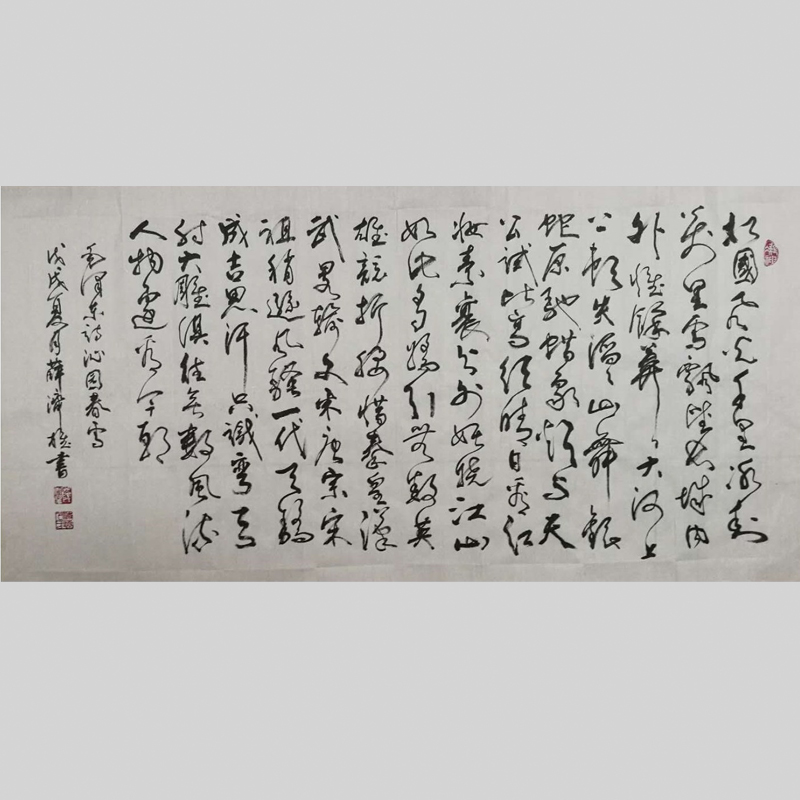 北國風光千里冰封
萬里雪飄望長城内
外惟餘莽〻大河上
下頓失滔〻山舞銀
蛇原馳蠟象欲与天
公試比高須晴日看红
妝素裹分外妖嬈江山
如此多嬌引無數英
雄競折腰惜秦皇漢
武畧輸文采唐宗宋
祖稍遜風騷一代天驕
成吉思汗只識彎弓
射大雕俱往矣數風流
人物還看今朝
毛澤东詩沁园春雪
戊戌夏月薛濟書